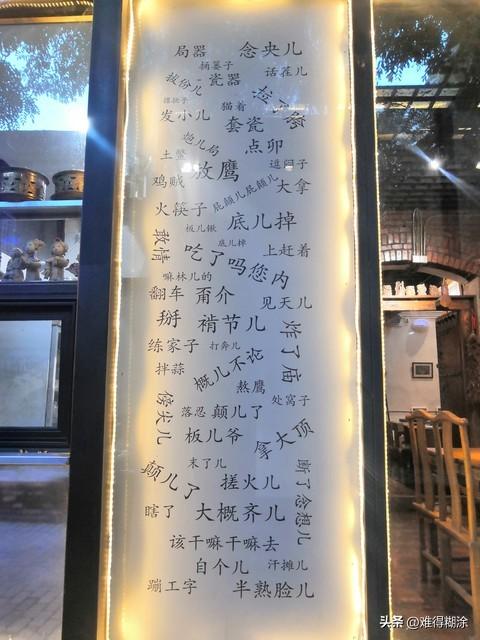 局器 念央儿
扬篓子 话茬儿
拔份儿 瓷器
猫着
发小儿 套瓷
炮儿局 点卯
土鳖 放鹰 逗闷子
鸡贼 屁颠儿屁颠儿 大拿
火筷子 底儿掉
板儿锹
底儿掉
敢情 吃了吗您内 上赶着
嘛林儿的
翻车 甭介 见天儿
掰 褃节儿 炸了庙
练家子 打奔儿
拌蒜 概儿不论
熬鹰 处窝子
傍尖儿 落忍 颠儿了
板儿爷 拿大顶
末了儿
颠儿了 搓火儿 断了念想儿
瞎了 大概齐儿
该干嘛干嘛去
自个儿 汗摊儿
蹦工字 半熟脸儿
头条 @难得糊涂